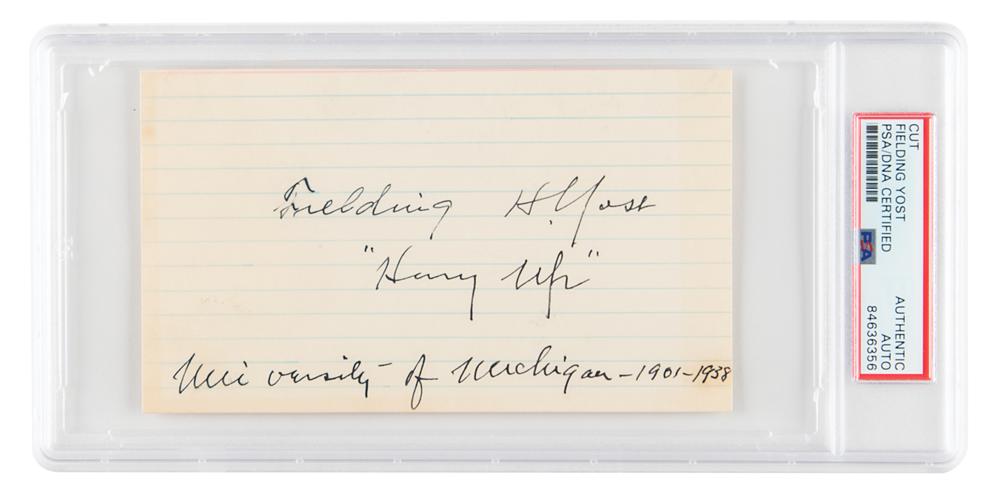 Fielding H. Yost
"Hurry Up"
University of Michigan - 1901 - 1938
CUT
FIELDING YOST
PSA/DNA CERTIFIED
PSA
AUTHENTIC
AUTO
84636356